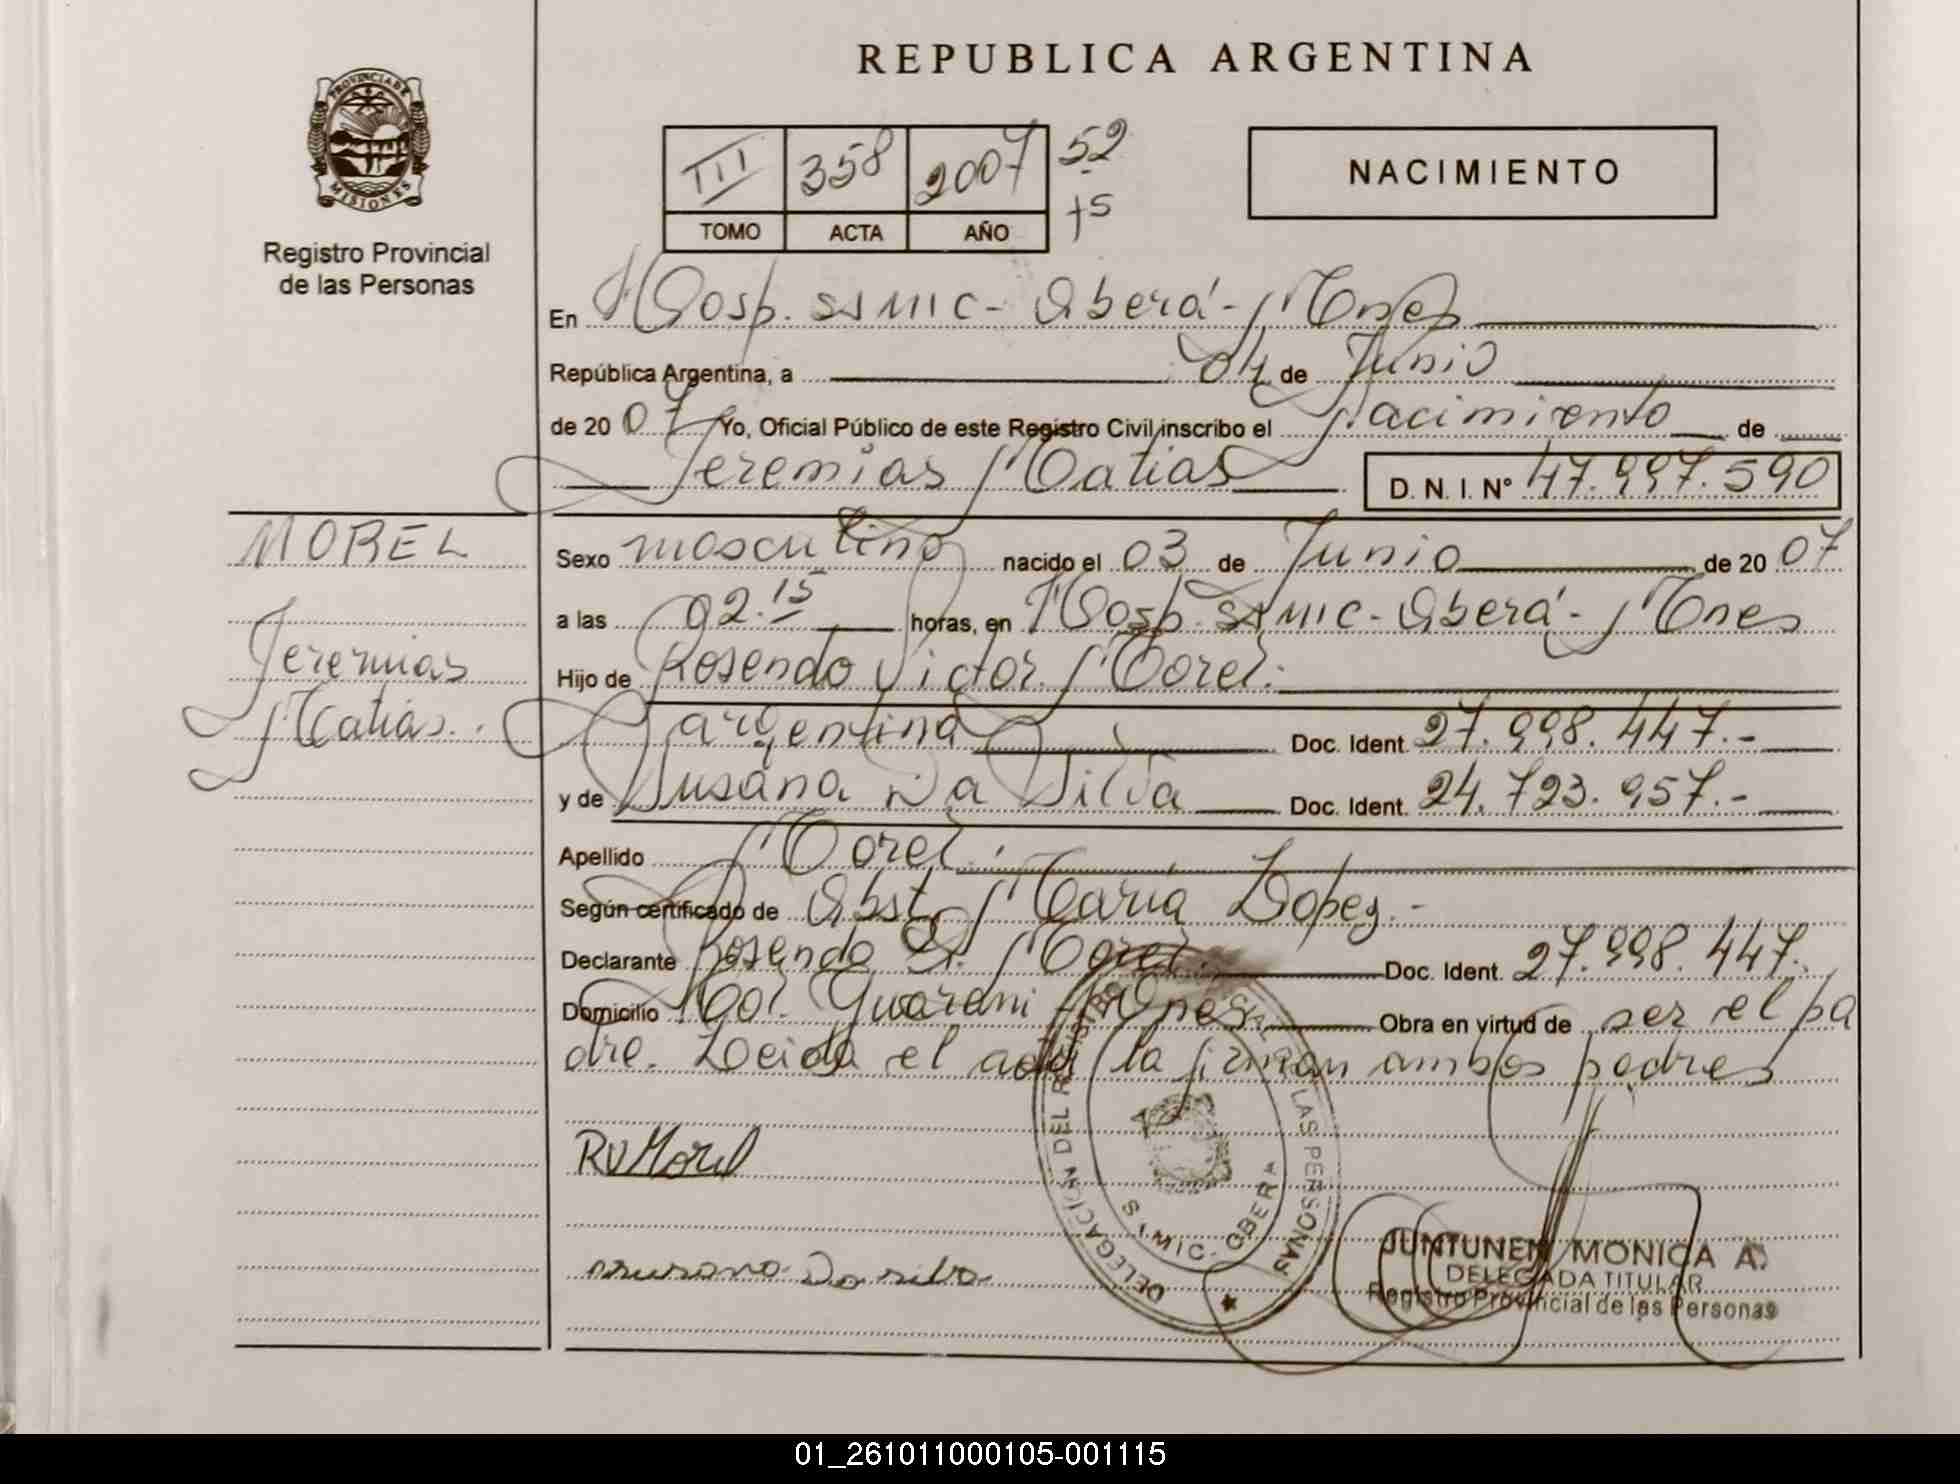 REPUBLICA ARGENTINA
PROVINCIA DE MISIONES
Registro Provincial
de las Personas
III 358 2007 52
TOMO ACTA AÑO +5
NACIMIENTO
En Hosp. SAMIC - Oberá - Mnes
República Argentina, a 04 de Junio
de 2007 Yo, Oficial Público de este Registro Civil inscribo el Nacimiento de
Jeremias Matias D. N. I. N° 47.997.590
MOREL
Jeremias
Matias.
Sexo masculino nacido el 03 de Junio de 2007
a las 02.15 horas, en Hosp. SAMIC - Oberá - Mnes
Hijo de Rosendo Victor Morel.
argentina Doc. Ident. 27.998.447.-
y de Susana Da Silva Doc. Ident. 24.723.957.-
Apellido Morel.
Según certificado de Obst. Maria Lopez.-
Declarante Rosendo V. Morel. Doc. Ident. 27.998.447.
Domicilio Col. Guarani - Mnes Obra en virtud de ser el pa
dre. Leida el acta la firman ambos padres
RVMorel
susana Da silva
DELEGACIÓN DEL REGISTRO PROVINCIAL DE LAS PERSONAS
SAMIC - OBERA
JUNTUNEN MONICA A.
DELEGADA TITULAR
Registro Provincial de las Personas
01_261011000105-001115